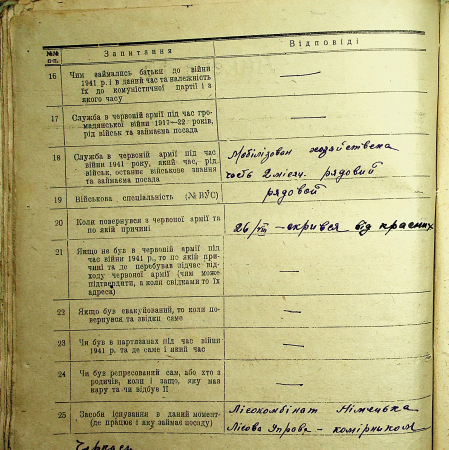 №№ п-п. Запитання Відповіді
16 Чим займались батьки до війни
1941 р. і в даний час та належність
їх до комуністичної партії і з
якого часу —
17 Служба в червоній армії під час гро-
мадянської війни 1917—22 років,
рід військ та займаєма посада —
18 Служба в червоній армії під час
війни 1941 року, який час, рід
військ, останнє військове звання
та займаєма посада
Мобілізован хозяйствена
часть 2 місяц. рядовий
19 Військова спеціальність (№ ВУС) рядовой
20 Коли повернувся з червоної армії та
по якій причині 26/ІХ — скрився від красних
21 Якщо не був в червоній армії під
час війни 1941 р., то по якій при-
чині та де перебував підчас від-
ходу червоної армії (чим може
підтвердити, а коли свідками то їх
адреса) —
22 Якщо був евакуйований, то коли по-
вернувся та звідки саме —
23 Чи був в партизанах під час війни
1941 р. та де саме і який час —
24 Чи був репресований сам, або хто з
родичів, коли і защо, яку мав
кару та чи відбув її —
25 Засоби існування в даний момент
(де працює і яку займає посаду)
Лісокомбінат Німецька
Лісова Управа — комірником